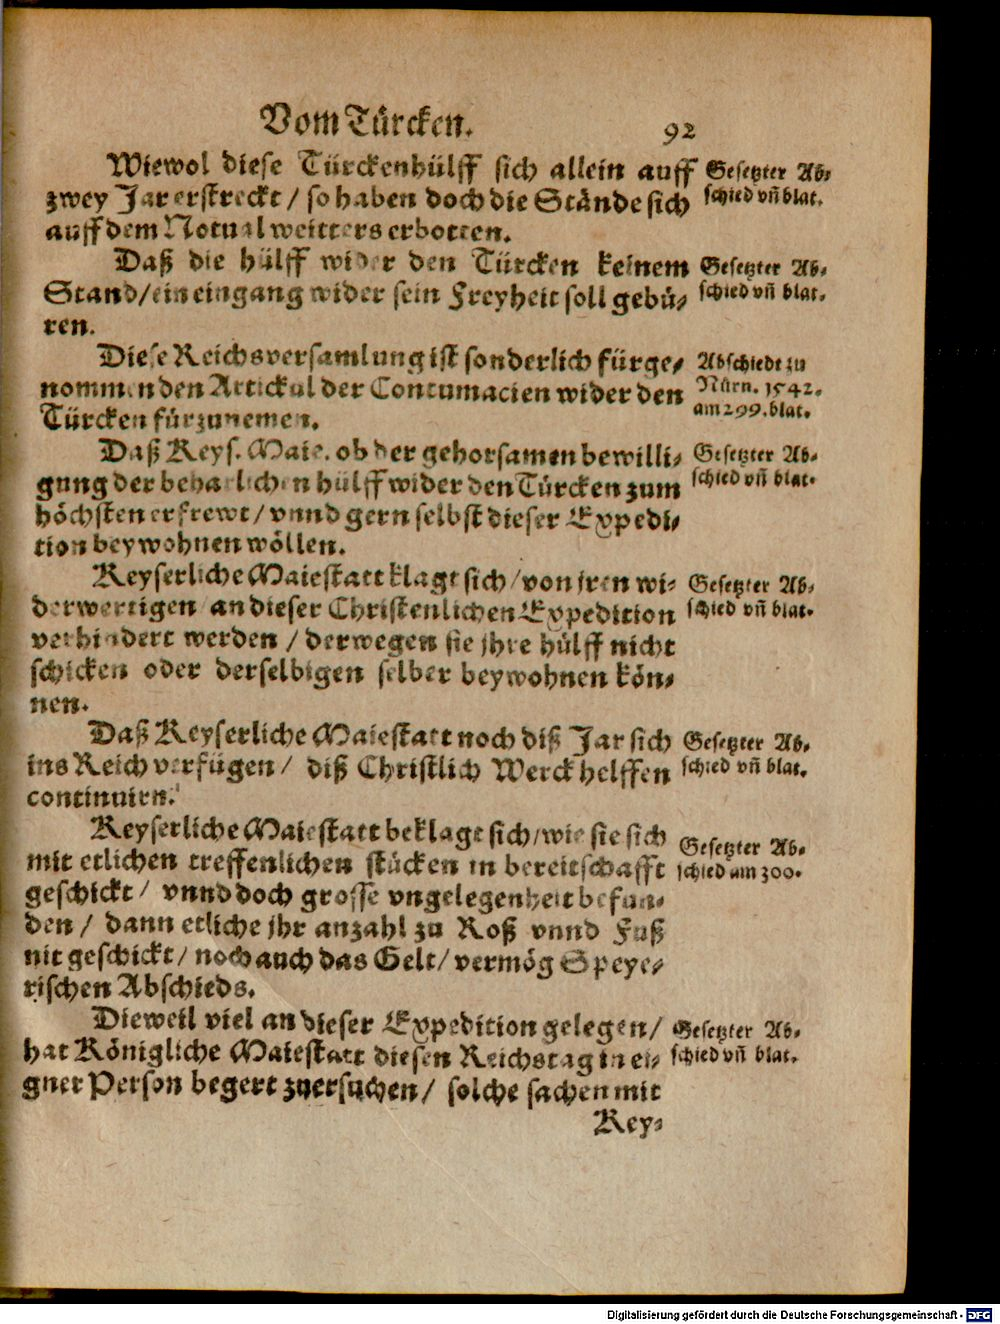 Vom Türcken. 92
Wiewol diese Türckenhülff sich allein auff
zwey Jar erstreckt / so haben doch die Stände sich
auff dem Notual weitters erbotten.
Gesetzter Ab-
schied vñ blat.
Daß die hülff wider den Türcken keinem
Stand / ein eingang wider sein Freyheit soll gebü-
ren.
Gesetzter Ab-
schied vñ blat.
Diese Reichsversamlung ist sonderlich fürge-
nommen den Artickul der Contumacien wider den
Türcken fürzunemen.
Abschiedt zu
Nürn. 1542.
am 299. blat.
Daß Keys. Maie. ob der gehorsamen bewilli-
gung der beharlichen hülff wider den Türcken zum
höchsten erfrewt / vnnd gern selbst dieser Expedi-
tion beywohnen wöllen.
Gesetzter Ab-
schied vñ blat.
Keyserliche Maiestatt klagt sich / von jren wi-
derwertigen an dieser Christenlichen Expedition
verhindert werden / derwegen sie jhre hülff nicht
schicken oder derselbigen selber beywohnen kön-
nen.
Gesetzter Ab-
schied vñ blat.
Daß Keyserliche Maiestatt noch diß Jar sich
ins Reich verfügen / diß Christlich Werck helffen
continuirn.
Gesetzter Ab-
schied vñ blat.
Keyserliche Maiestatt beklagt sich / wie sie sich
mit etlichen treffenlichen stücken in bereitschafft
geschickt / vnnd doch grosse vngelegenheit befun-
den / dann etliche jhr anzahl zu Roß vnnd Fuß
nit geschickt / noch auch das Gelt / vermög Speye-
rischen Abschieds.
Gesetzter Ab-
schied am 300.
Dieweil viel an dieser Expedition gelegen /
hat Königliche Maiestatt diesen Reichstag in ei-
gner Person begert zuersuchen / solche sachen mit
Gesetzter Ab-
schied vñ blat.
Key-
Digitalisierung gefördert durch die Deutsche Forschungsgemeinschaft - DFG